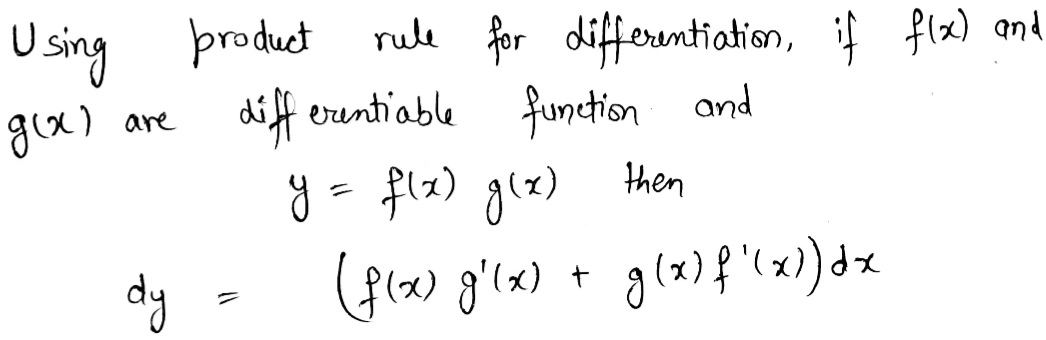 Using product rule for differentiation, if f(x) and
g(x) are differentiable function and
y = f(x) g(x) then
dy = (f(x) g'(x) + g(x) f'(x)) dx